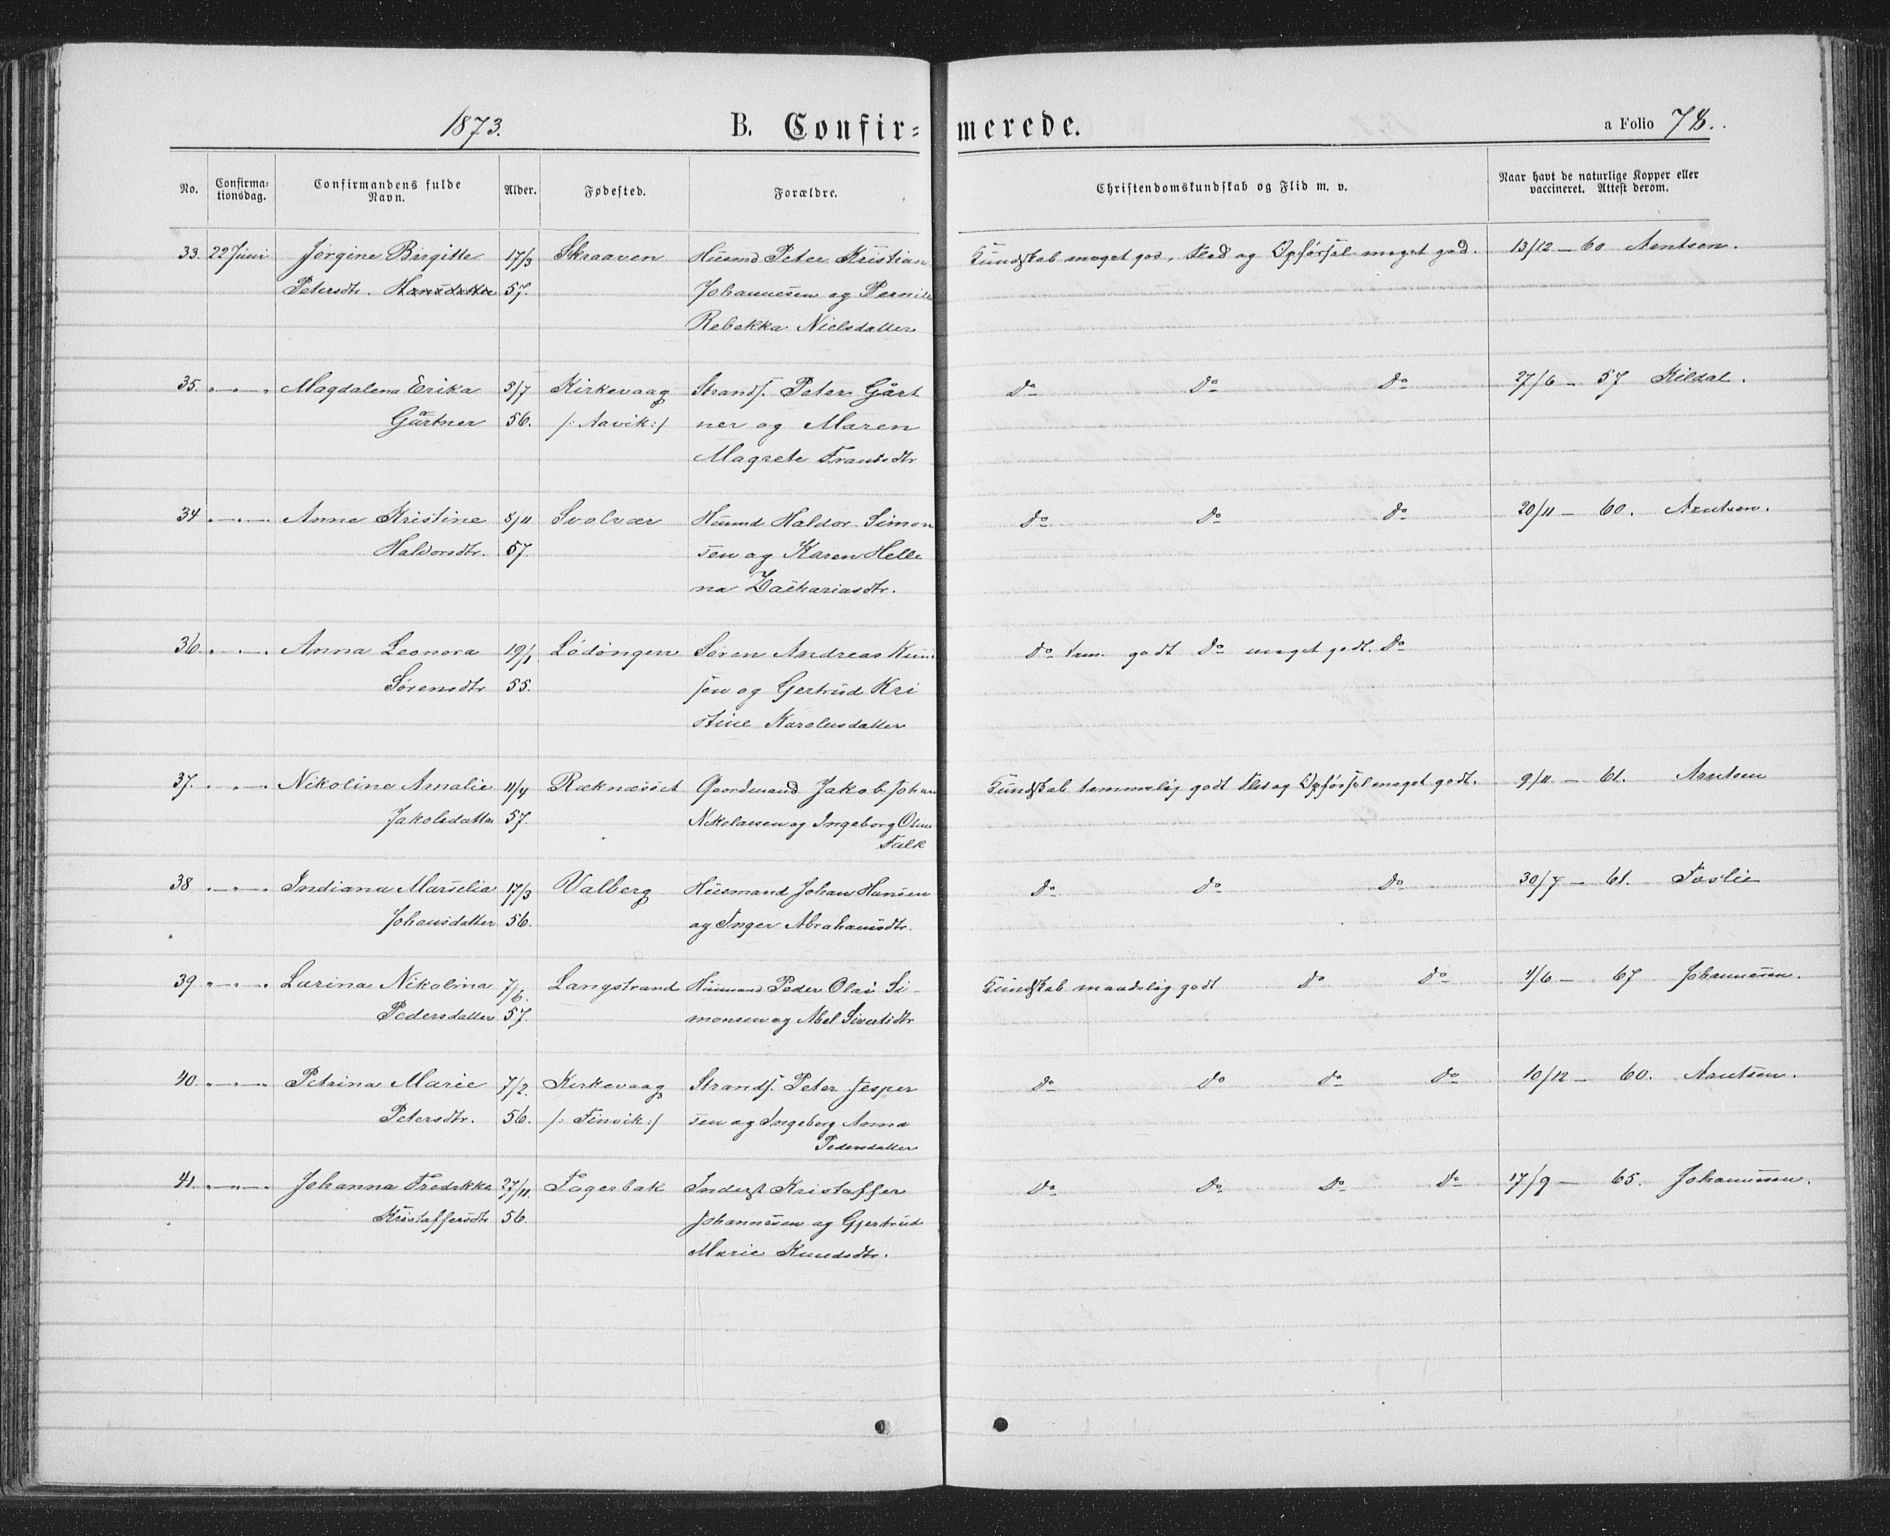 1873. B. Confir= merede. a Folio 78.
No. Confirma=tionsdag. Confirmandens fulde Navn. Alder. Fødested. Forældre. Christendomskundskab og Flid m. v. Naar havt de naturlige Kopper eller vaccineret. Attest derom.
33. 22 Juni Jørgine Birgitte 17/3 Skraaven Husmd Peter Kristian Kundskab meget god, Flid og Opførsel meget god. 13/12 – 60 Arntsen.
Petersdtr. Hansdatter 57. Johannesen og Pernille
Rebekka Nielsdatter
35. " – " – " Magdalena Erika 5/7 Kirkevaag Strands. Peter Gårt do do do 27/6 – 57 Kildal.
Gårtner 56. /: Aavik :/ ner og Maren
Magrete Frantsdtr
34 " – " – " Anne Kristine 5/11 Svolvær Husmd Haldor Simon do do do 20/11 – 60. Arntsen.
Haldorsdtr. 57. sen og Karen Helle
na Zachariasdtr.
36. " – " – " Anna Leonora 19/1 Lødøngen Søren Andreas do tem. godt do meget godt. do
Sørensdtr 55. sen og Gertrud Kri
stine Karolusdatter
37. " – " – " Nikoline Amalie 11/4 Ræknæsset Gaardmand Jakob Johan Kundskab temmelig godt Flid og Opførsel meget godt. 9/11 – 61. Arntsen
Jakobsdatter 57. Nikolaisen og Ingeborg Oline
Falk
38 " – " – " Indiana Marselia 17/3 Valberg Husmand Johan Hansen do do do 30/7 – 61.
Johansdatter 56. og Inger Abrahamsdtr.
39 " – " – " Lurina Nikolina 7/6 Langstrand Husmand Peder Olai Si- Kundskab maadelig godt do do 4/6 – 67 Johannesen.
Pedersdatter 57. monsen og Abel Sivertsdtr
40. " – " – " Petrina Marie 7/2. Kirkevaag Strands. Peter Jesper do do do do 10/12 – 60. Arntsen.
Petersdtr. 56. /: Finvik :/ sen og Ingeborg Anna
Pedersdatter
41. " – " – " Johanna Fredrikke 27/11. Fagerbak Inderst Kristaffer do do do do 17/9 – 65. Johannesen.
Kristaffersdtr 56. Johannesen og Gjertrud
Marie Knudsdtr.